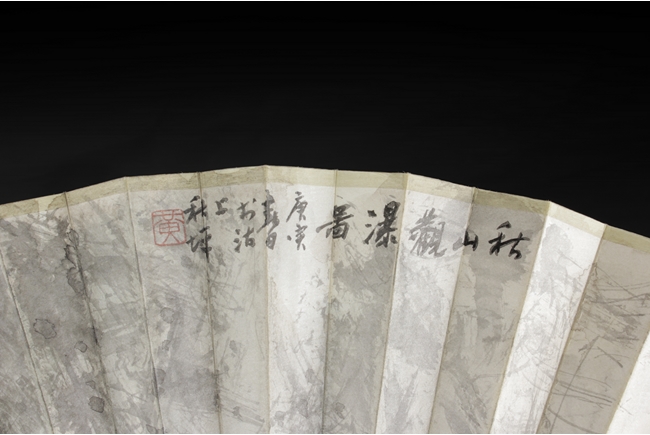 秋山觀瀑圖
庚寅
春日
於沽
上
秋坪
黃